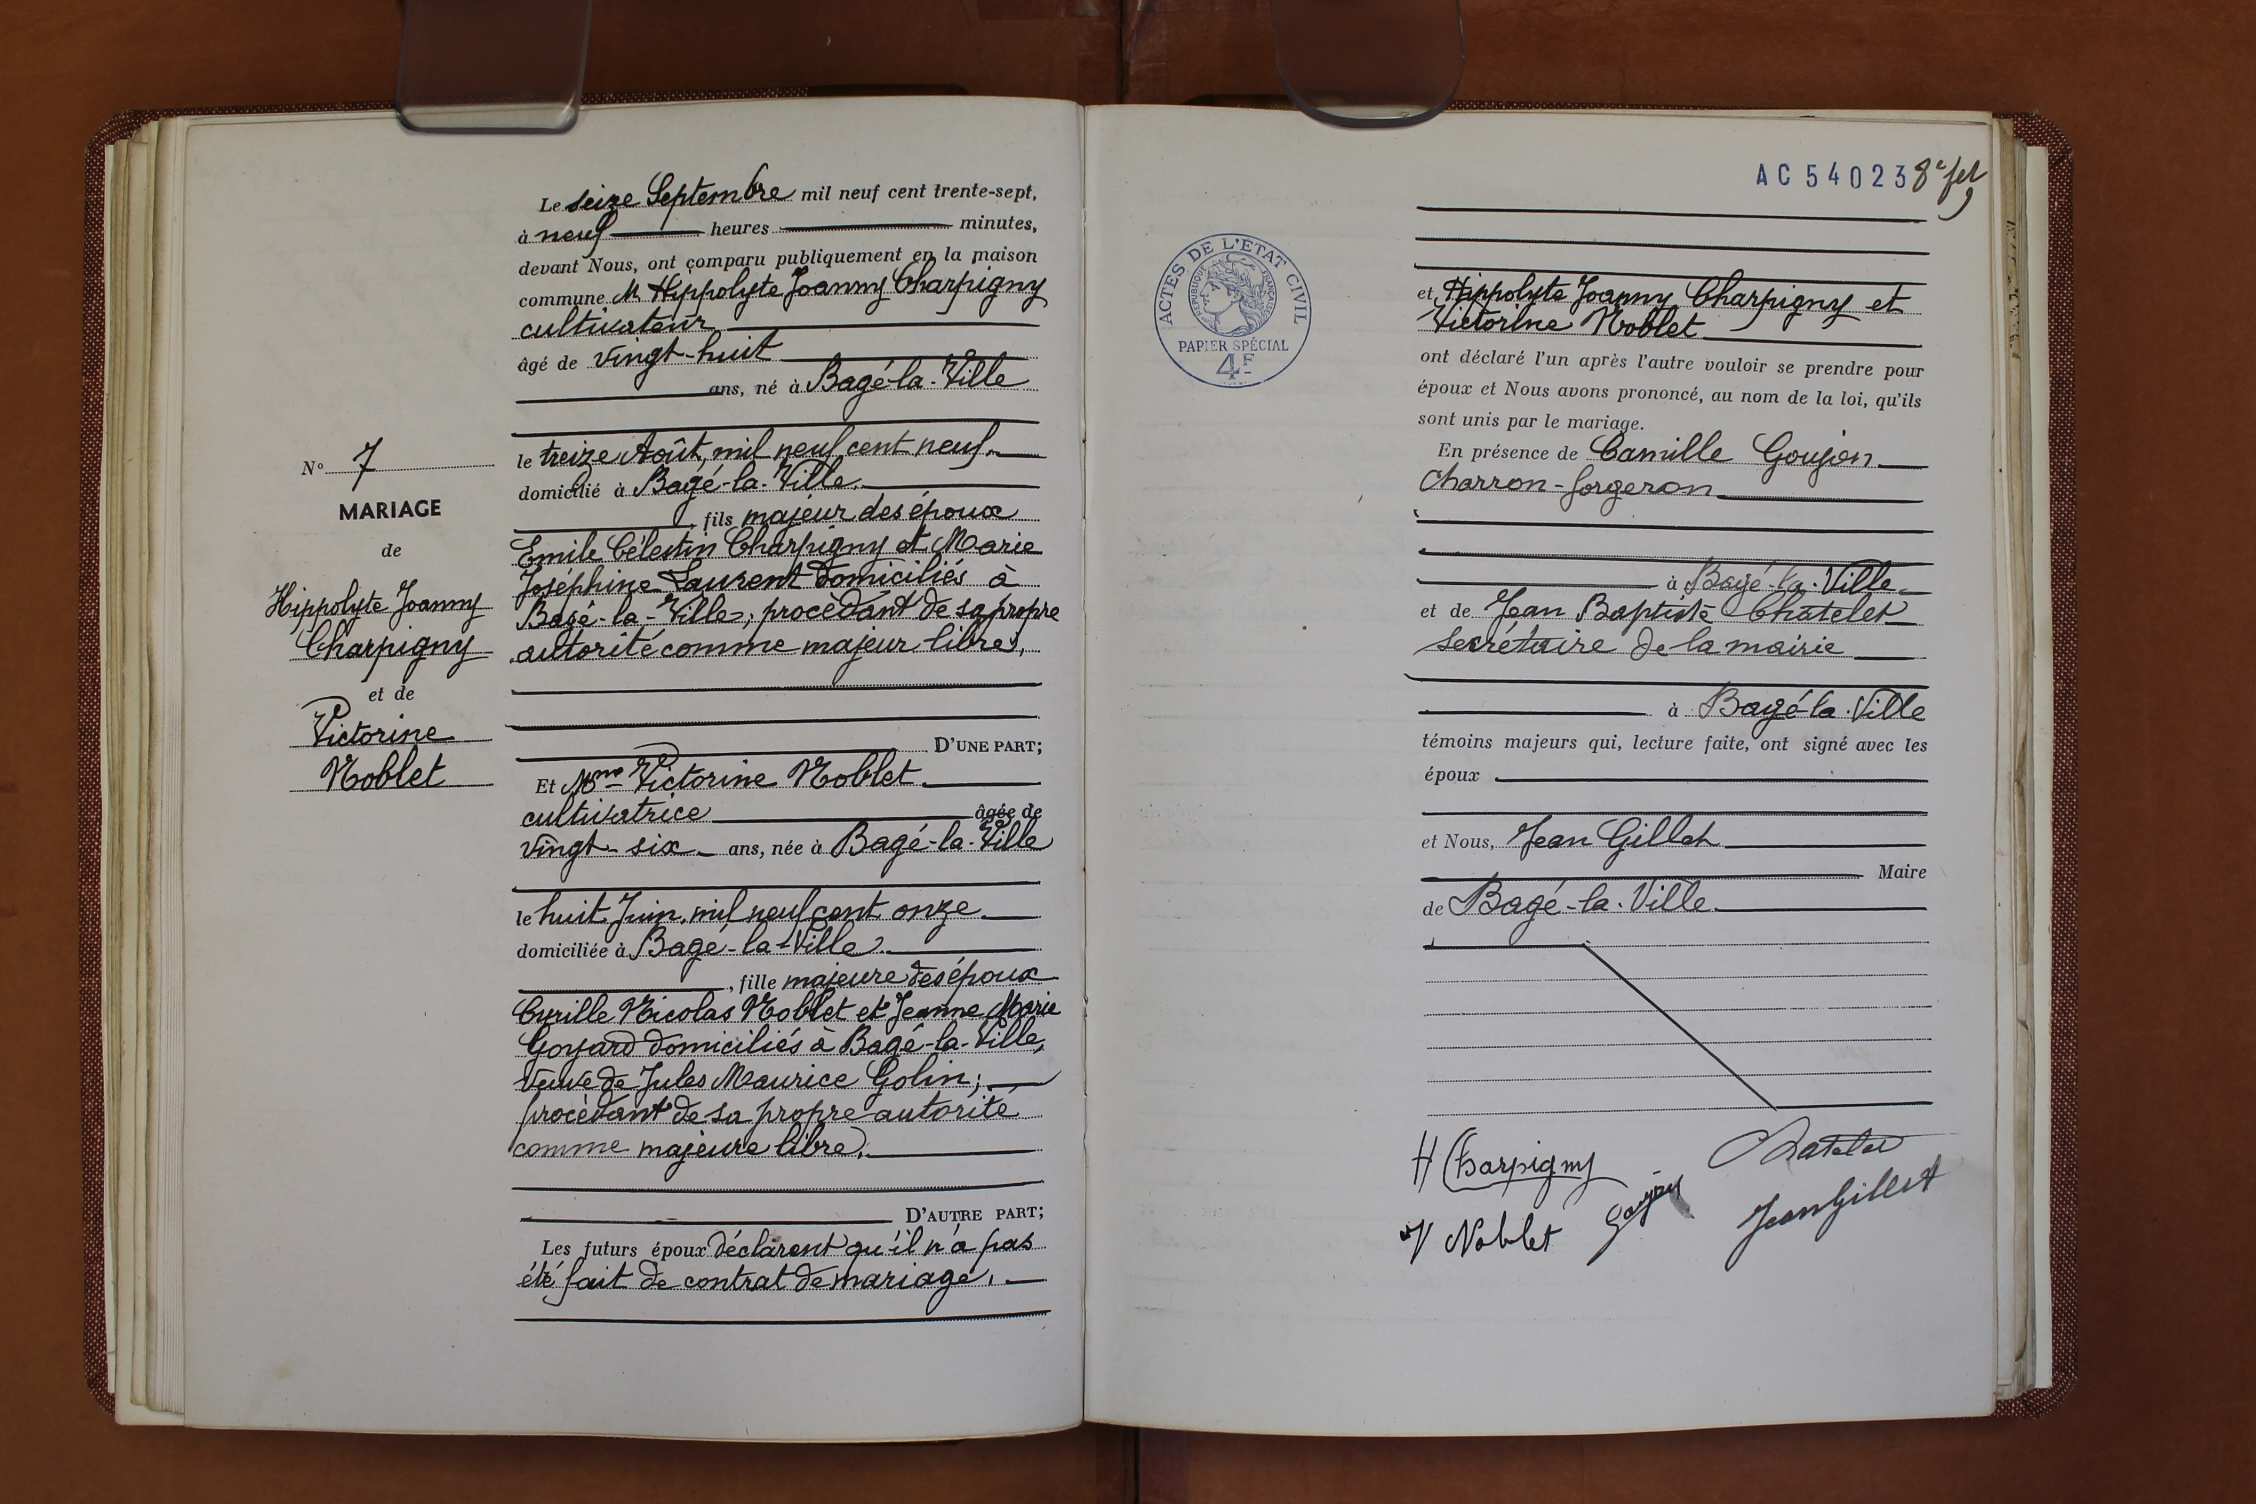 N° 7
MARIAGE
de
Hippolyte Joanny
Charpigny
et de
Victorine
Noblet
Le seize Septembre mil neuf cent trente-sept,
à neuf heures minutes,
devant Nous, ont comparu publiquement en la maison
commune M Hippolyte Joanny Charpigny
cultivateur
âgé de vingt-huit
ans, né à Bagé-la-Ville
le treize Août, mil neuf cent neuf
domicilié à Bagé-la-Ville.
fils majeur des époux
Emile Célestin Charpigny et Marie
Joséphine Laurent domiciliés à
Bagé-la-Ville, procédant de sa propre
autorité comme majeur libre,
D'UNE PART;
Et Mme Victorine Noblet
cultivatrice âgée de
vingt-six ans, née à Bagé-la-Ville
le huit Juin, mil neuf cent onze
domiciliée à Bagé-la-Ville
, fille majeure des époux
Cyrille Nicolas Noblet et Jeanne Marie
Goyard domiciliés à Bagé-la-Ville,
veuve de Jules Maurice Golin;
procédant de sa propre autorité
comme majeure libre.
D'AUTRE PART;
Les futurs époux déclarent qu'il n'a pas
été fait de contrat de mariage.
AC 54023 8e fet
ACTES DE L'ETAT CIVIL
REPUBLIQUE FRANÇAISE
PAPIER SPÉCIAL
4F
et Hippolyte Joanny Charpigny et
Victorine Noblet
ont déclaré l'un après l'autre vouloir se prendre pour
époux et Nous avons prononcé, au nom de la loi, qu'ils
sont unis par le mariage.
En présence de Camille Goujon
Charron-forgeron
à Bagé-la-Ville
et de Jean Baptiste Chatelet
secrétaire de la mairie
à Bagé-la-Ville
témoins majeurs qui, lecture faite, ont signé avec les
époux
et Nous, Jean Gillet
Maire
de Bagé-la-Ville
H Charpigny
Chatelet
V Noblet
Goujon
Jean Gillet